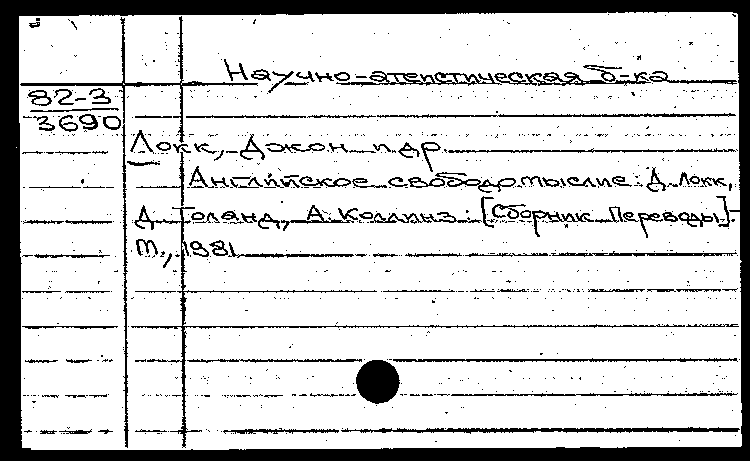 Научно-атеистическая б-ка
82-3
3690
Локк, Джон и др.
Английское свободомыслие: Д. Локк,
Д. Толанд, А. Коллинз: [Сборник. Переводы].-
М., 1981